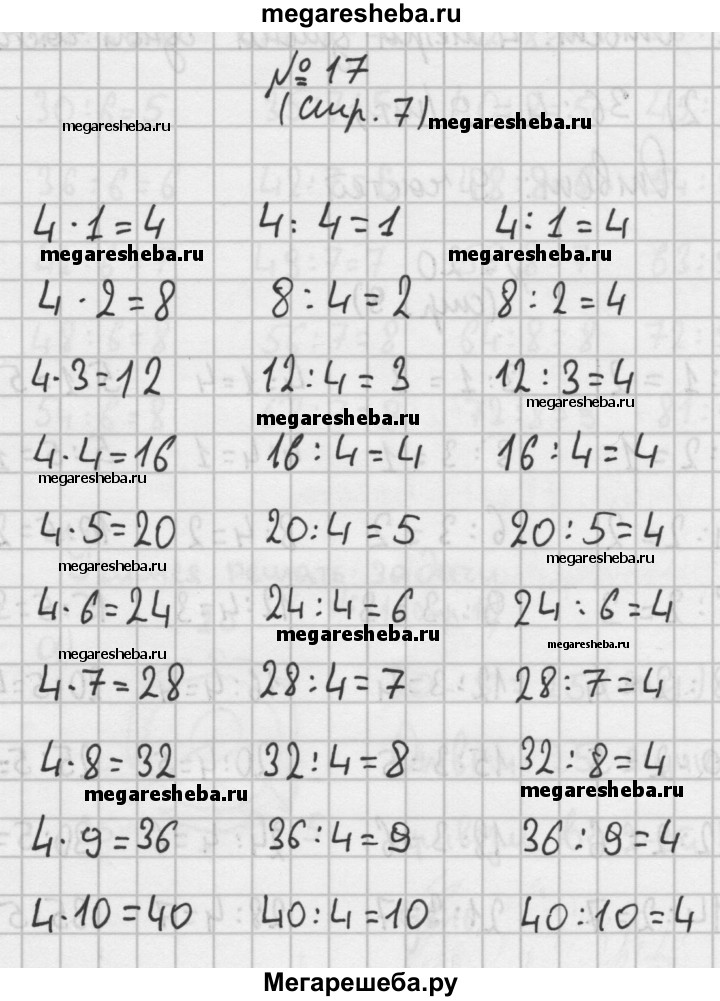 megaresheba.ru
№ 17
(стр. 7) megaresheba.ru
megaresheba.ru
4 · 1 = 4 4 : 4 = 1 4 : 1 = 4
megaresheba.ru megaresheba.ru
4 · 2 = 8 8 : 4 = 2 8 : 2 = 4
4 · 3 = 12 12 : 4 = 3 12 : 3 = 4
megaresheba.ru
megaresheba.ru
4 · 4 = 16 16 : 4 = 4 16 : 4 = 4
megaresheba.ru
4 · 5 = 20 20 : 4 = 5 20 : 5 = 4
megaresheba.ru megaresheba.ru
4 · 6 = 24 24 : 4 = 6 24 : 6 = 4
megaresheba.ru
megaresheba.ru megaresheba.ru
4 · 7 = 28 28 : 4 = 7 28 : 7 = 4
4 · 8 = 32 32 : 4 = 8 32 : 8 = 4
megaresheba.ru megaresheba.ru
4 · 9 = 36 36 : 4 = 9 36 : 9 = 4
4 · 10 = 40 40 : 4 = 10 40 : 10 = 4
Мегарешеба.ру